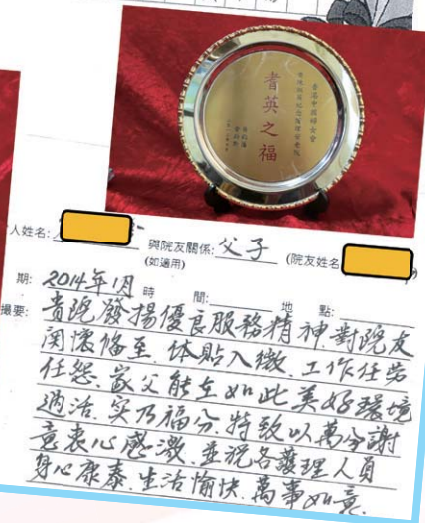 香港中國婦女會
耆英之福
人姓名:
與院友關係: 父子
(院友姓名
(如適用)
期: 2014年1月 時 間: 地 點:
撮要: 貴院發揚優良服務精神對院友
関懷俻至.体貼入微.工作任劳
任怨.家父能在如此美好環境
過活.实乃福分.特致以萬分謝
意衷心感激.並祝各護理人員
身心康泰.生活愉快.萬事如意.